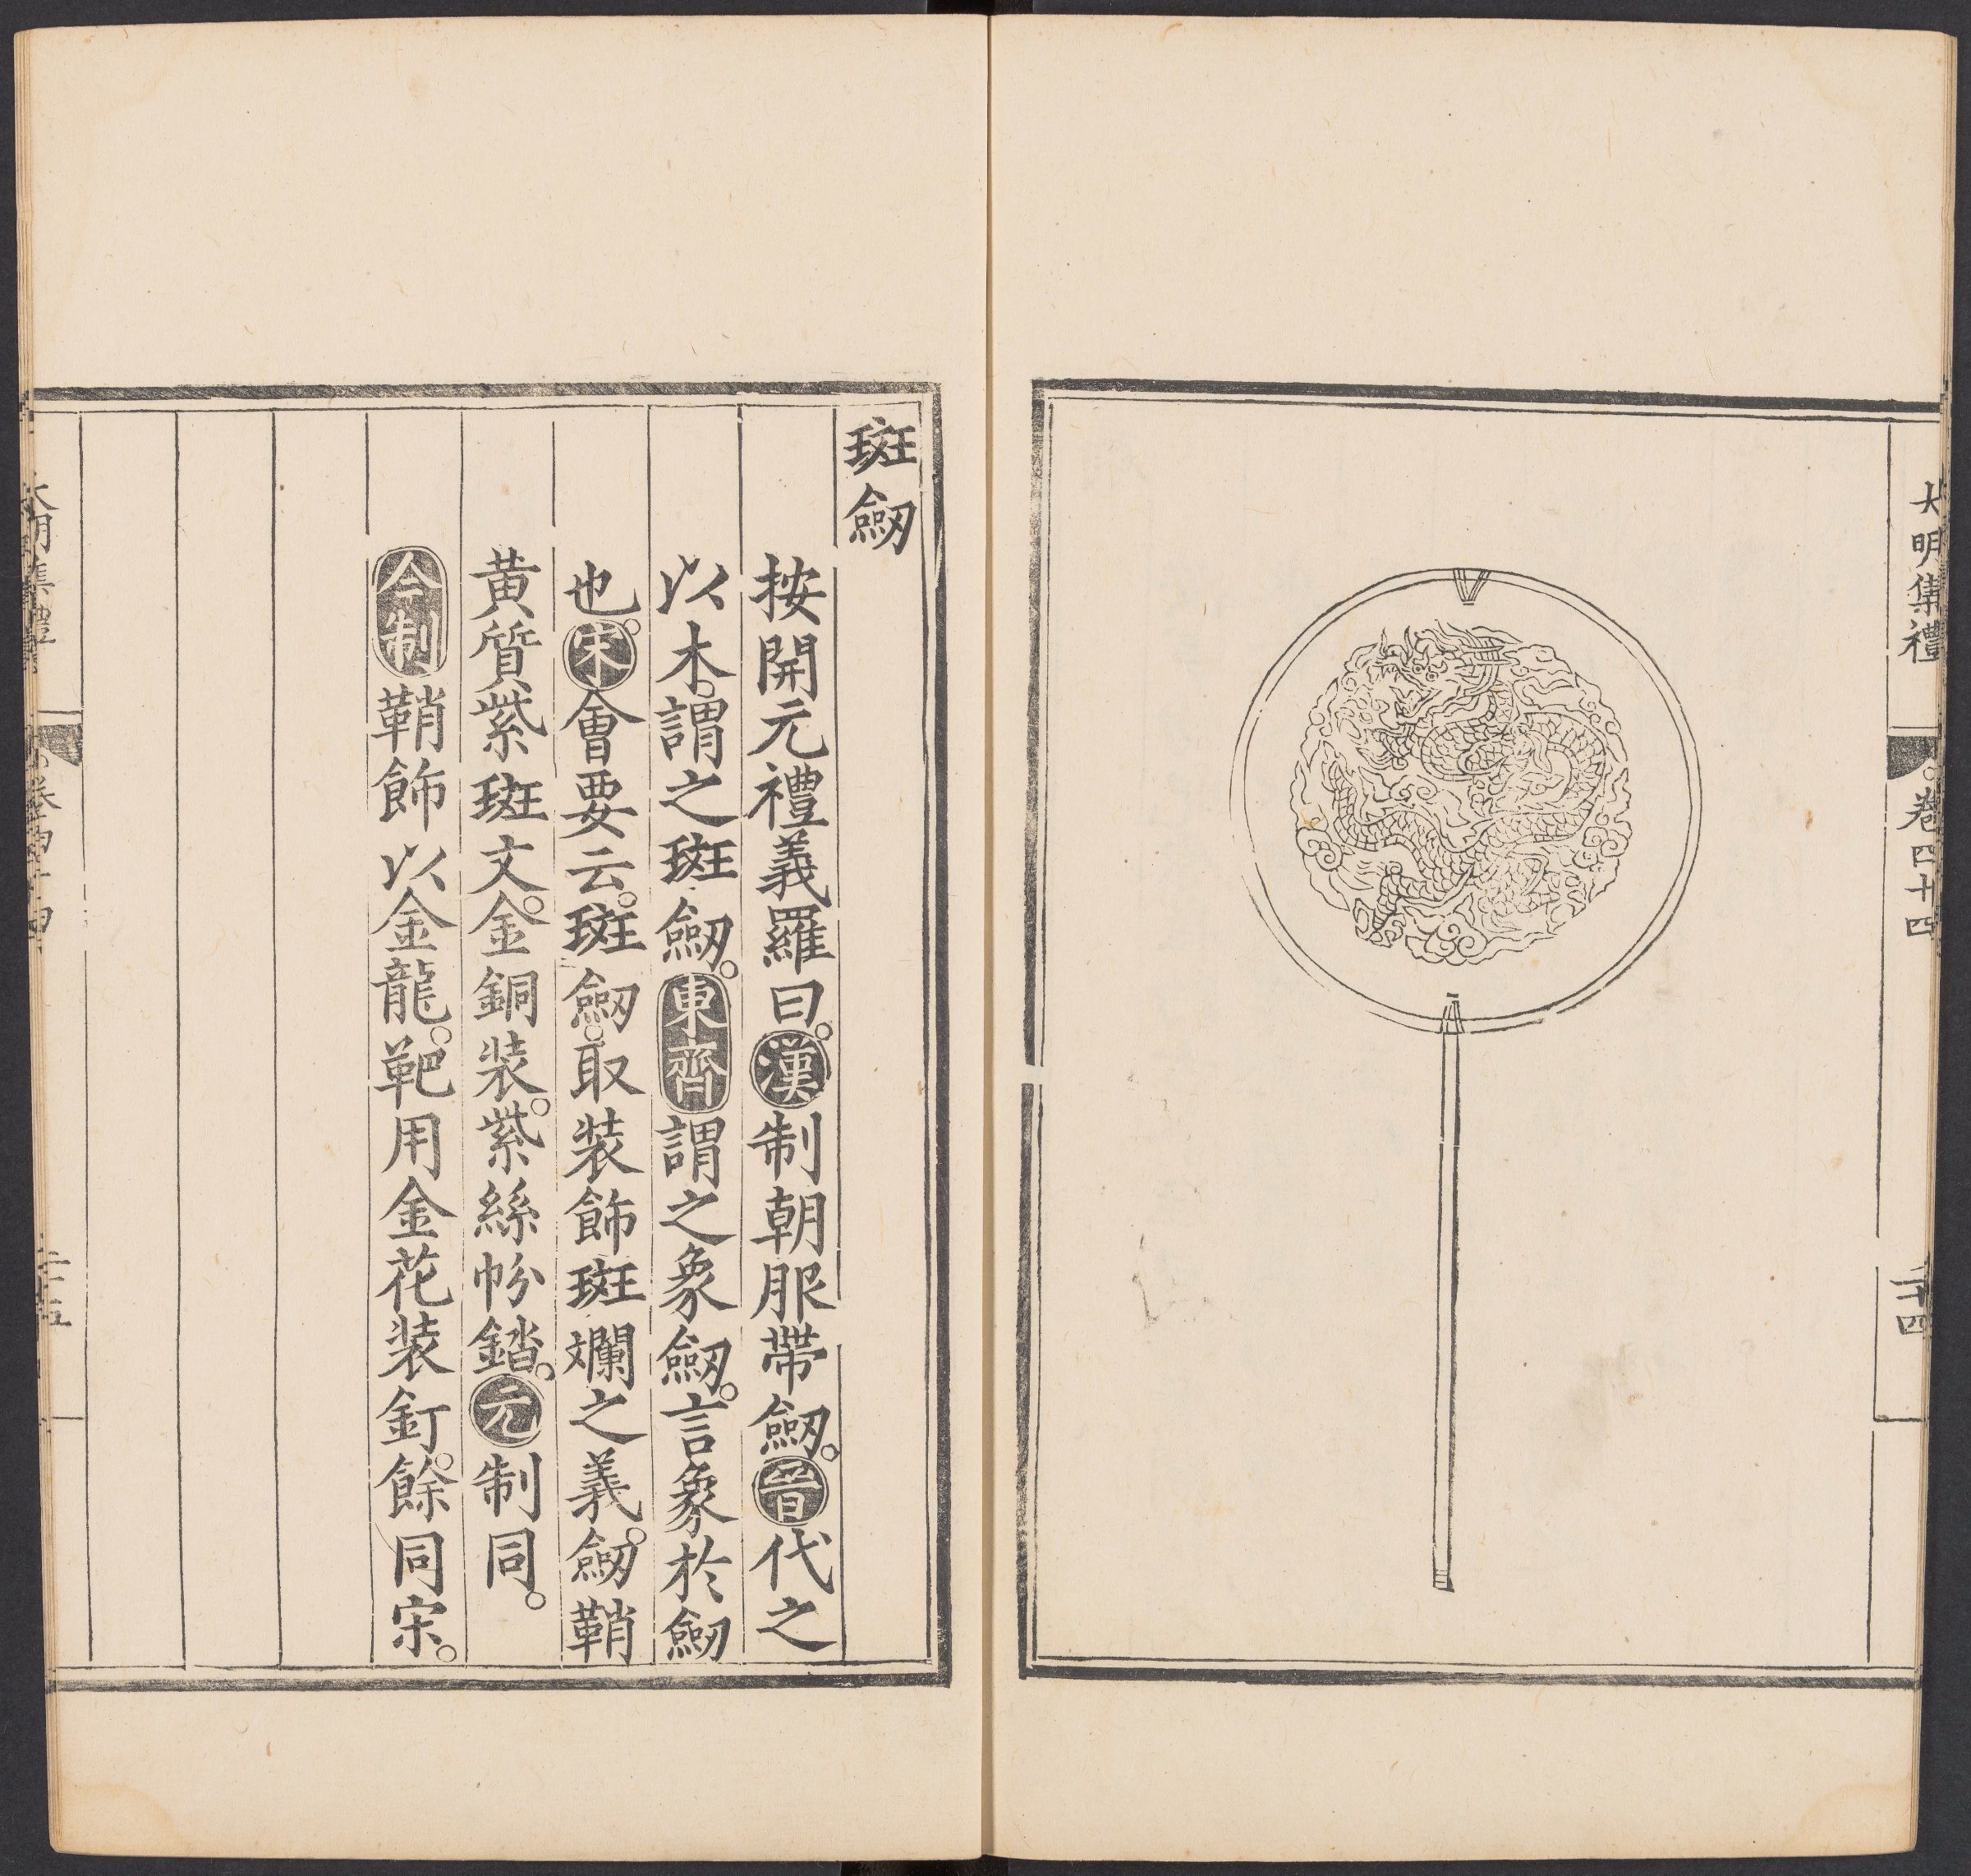 大明集禮
卷四十四
二十四
斑劔
按開元禮義羅曰。漢制朝服帶劔。晉代之
以木。謂之斑劔。東齊謂之象劔。言象於劔
也。宋會要云。斑劔。取裝飾斑斕之義。劔鞘
黄質紫斑文。金銅装。紫絲帉錔。元制同。
今制鞘飾以金龍。靶用金花装釘。餘同宋。
大明集禮
卷四十四
二十五